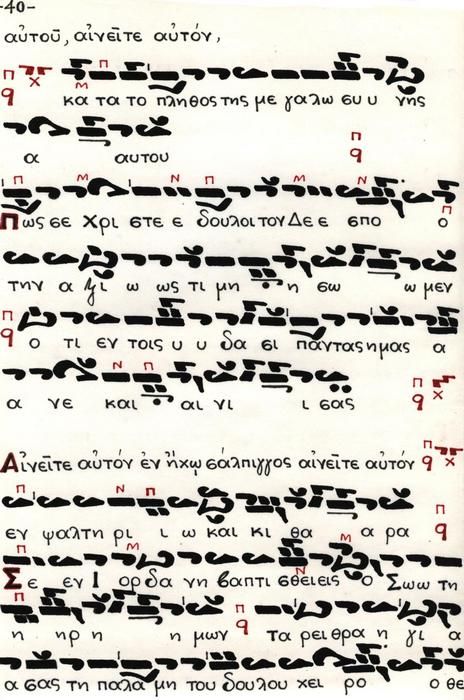 -40-
αὐτοῦ, αἰνεῖτε αὐτόν,
κα τα το πληθος της με γαλω συ υ νης
α αυτου
Πως σε Χρι στε ε δουλοι τον Δε ε σπο ο
την α γι ω ως τι μη η σω ω μεν
ο τι εν τοις υ υ δα σι παντας ημας α
α νε και αι νι ι σας
Αἰνεῖτε αὐτόν ἐν ἤχω σάλπιγγος αἰνεῖτε αὐτόν
εν ψαλτη ρι ι ω και κι θα α ρα
Σε εν Ι ορ δα νη βαπτι σθεις ο Σωω τη
η ηρ η η μων τα ρει θρα η γι α
α σας τη παλα μη του δουλου χει ρο ο θε